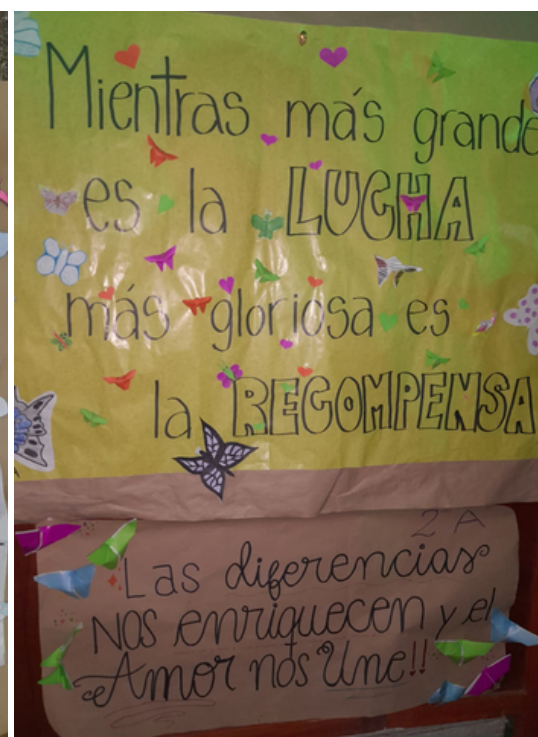 Mientras más grande
es la LUCHA
más gloriosa es
la RECOMPENSA
2 A
Las diferencias
Nos enriquecen y el
Amor nos Une!!